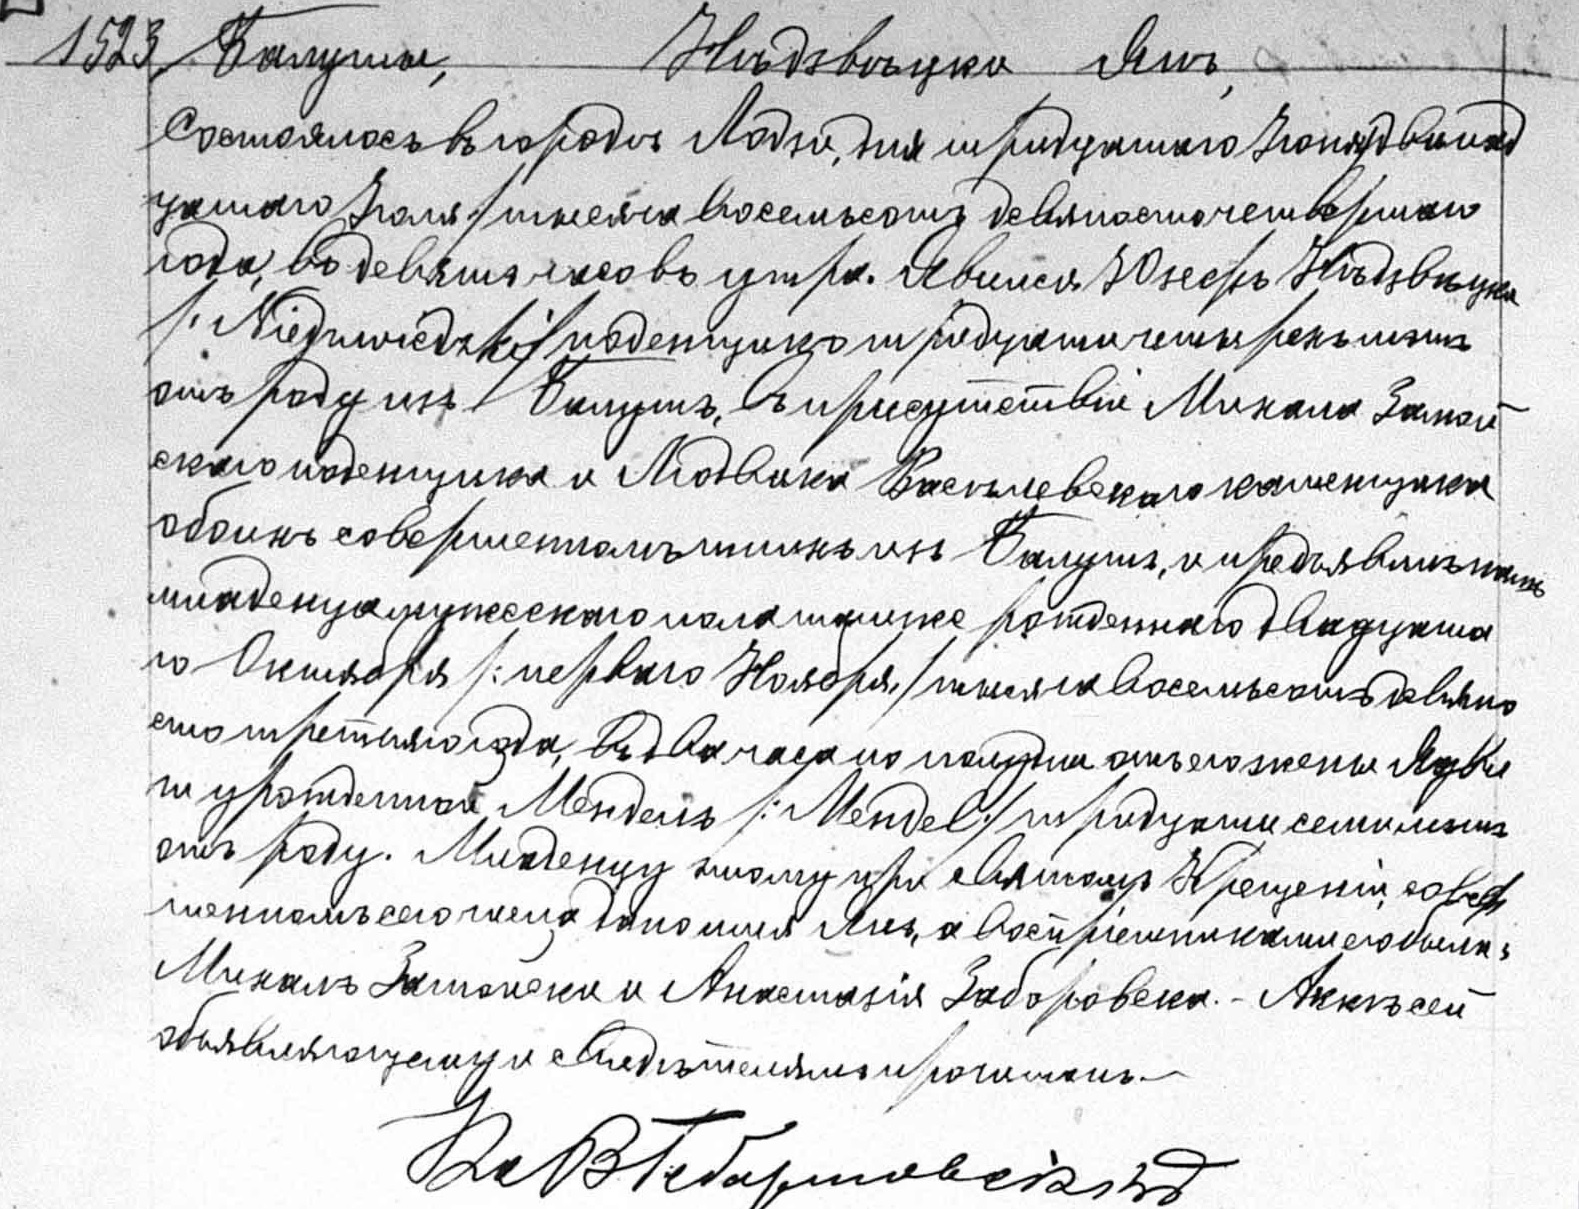 1523. Балуты, Нѣдзвѣцки Янъ
Состоялось въ городѣ Лодзи, дня тридцатаго Іюня /двѣнад
цатаго Іюля:/ тысяча восемьсотъ девяносто четвертаго
года, въ девять часовъ утра. Явился Юзефъ Нѣдзвѣцки
/: Niedzwiedzki:/ поденщикъ тридцати четырехъ лѣтъ
отъ роду изъ Балутъ, въ присутствіи Михала Замой
скаго поденщика и Людвика Васильевскаго каменщика
обоихъ совершеннолѣтнихъ изъ Балутъ, и предъявилъ намъ
младенца мужескаго пола также рожденнаго двадцата
го Октября /: перваго Ноября:/ тысяча восемьсотъ девяно
сто третьяго года, въ два часа по полудни отъ его жены Ядви
ги урожденной Мендель /: Mendel:/ тридцати семи лѣтъ
отъ роду. Младенцу этому при Святомъ Крещеніи, совер
шенномъ сего числа дано имя Янъ, а воспріемниками его были:
Михалъ Замойски и Анастазія Заборовска. - Актъ сей
объявляющему и свидѣтелямъ прочитанъ. -